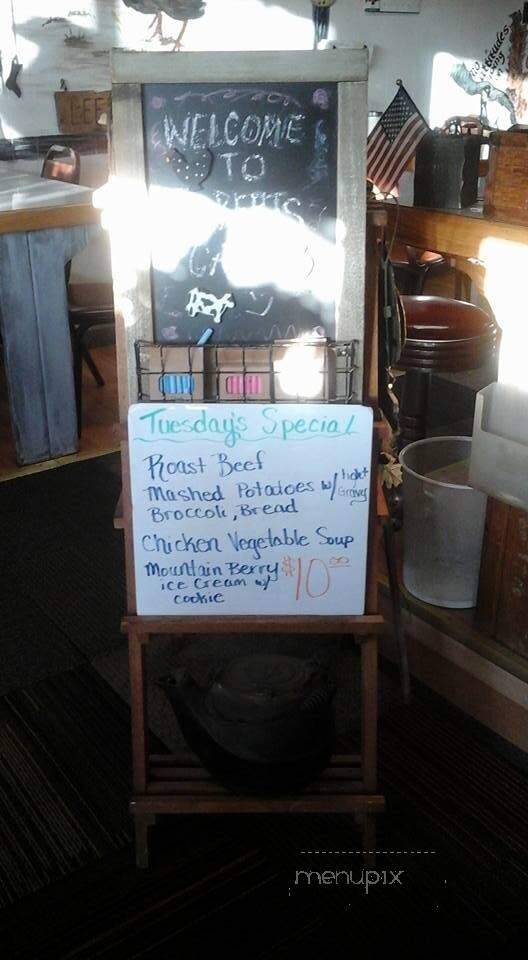 WELCOME
TO
Tuesday's Special
Roast Beef
Mashed Potatoes w/ light Gravy
Broccoli, Bread
Chicken Vegetable Soup
Mountain Berry $10.00
ice cream w/
cookie
menupix